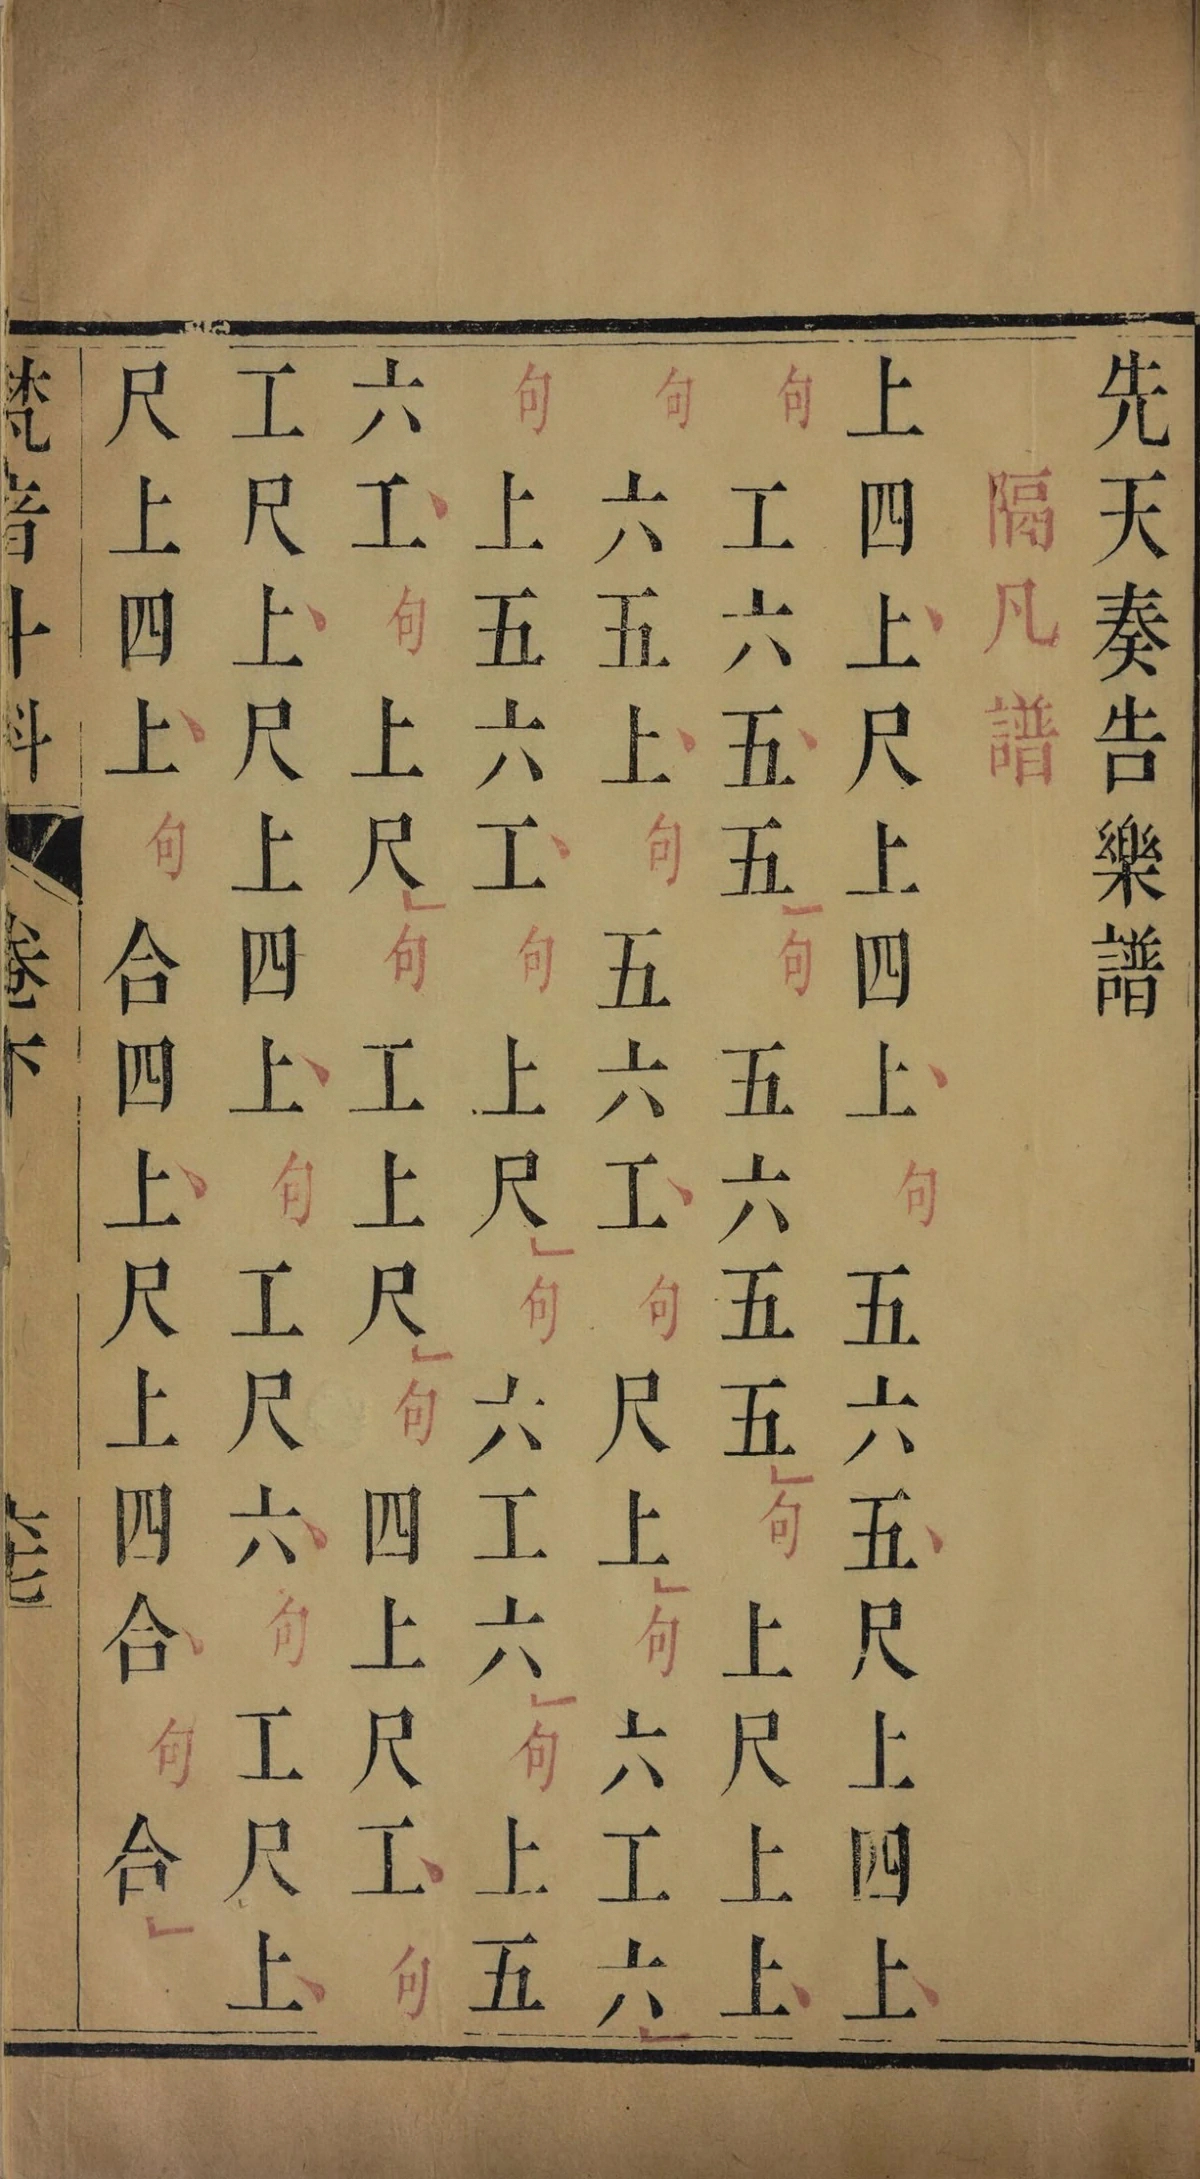 先天奏告樂譜
隔凡譜
上四上尺上四上句五六五尺上四上
句工六五五句五六五五句上尺上上
句六五上句五六工句尺上句六工六
句上五六工句上尺句六工六句上五
六工句上尺句工上尺句四上尺工句
工尺上尺上四上句工尺六句工尺上
尺上四上句合四上尺上四合句合
梵音斗科
卷下